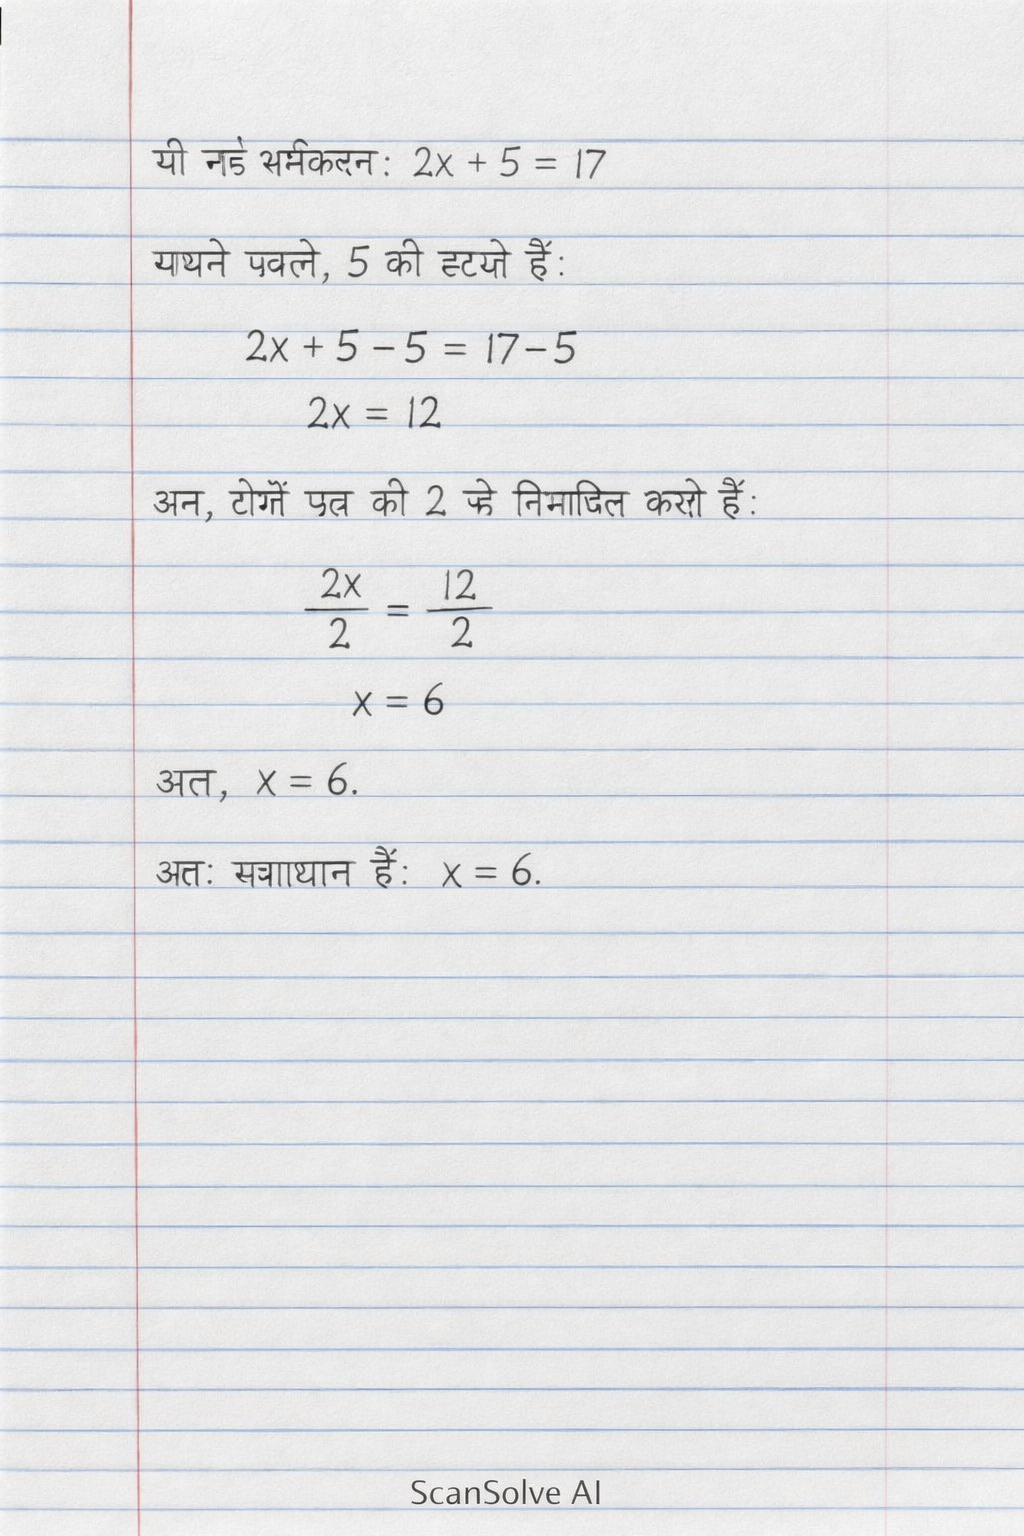 यी नडे सर्मकदन: 2x + 5 = 17
याथने पवले, 5 की हटयो हैं:
2x + 5 – 5 = 17 – 5
2x = 12
अन, टोगों पत्र की 2 के निमाजिल करतो हैं:
2x/2 = 12/2
x = 6
अत, x = 6.
अतः समााथान हैं: x = 6.
ScanSolve AI